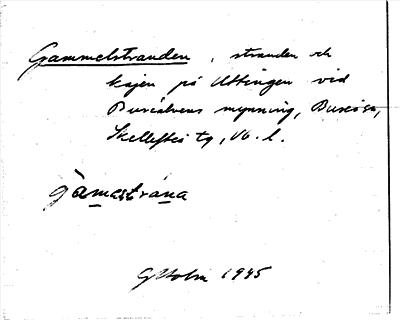 Gammelstranden, stranden och
kajen på Uttingen vid
Bureälvens mynning, Bureå sn,
Skellefteå tg, Vb. l.
gàmastrána
G Holm 1945